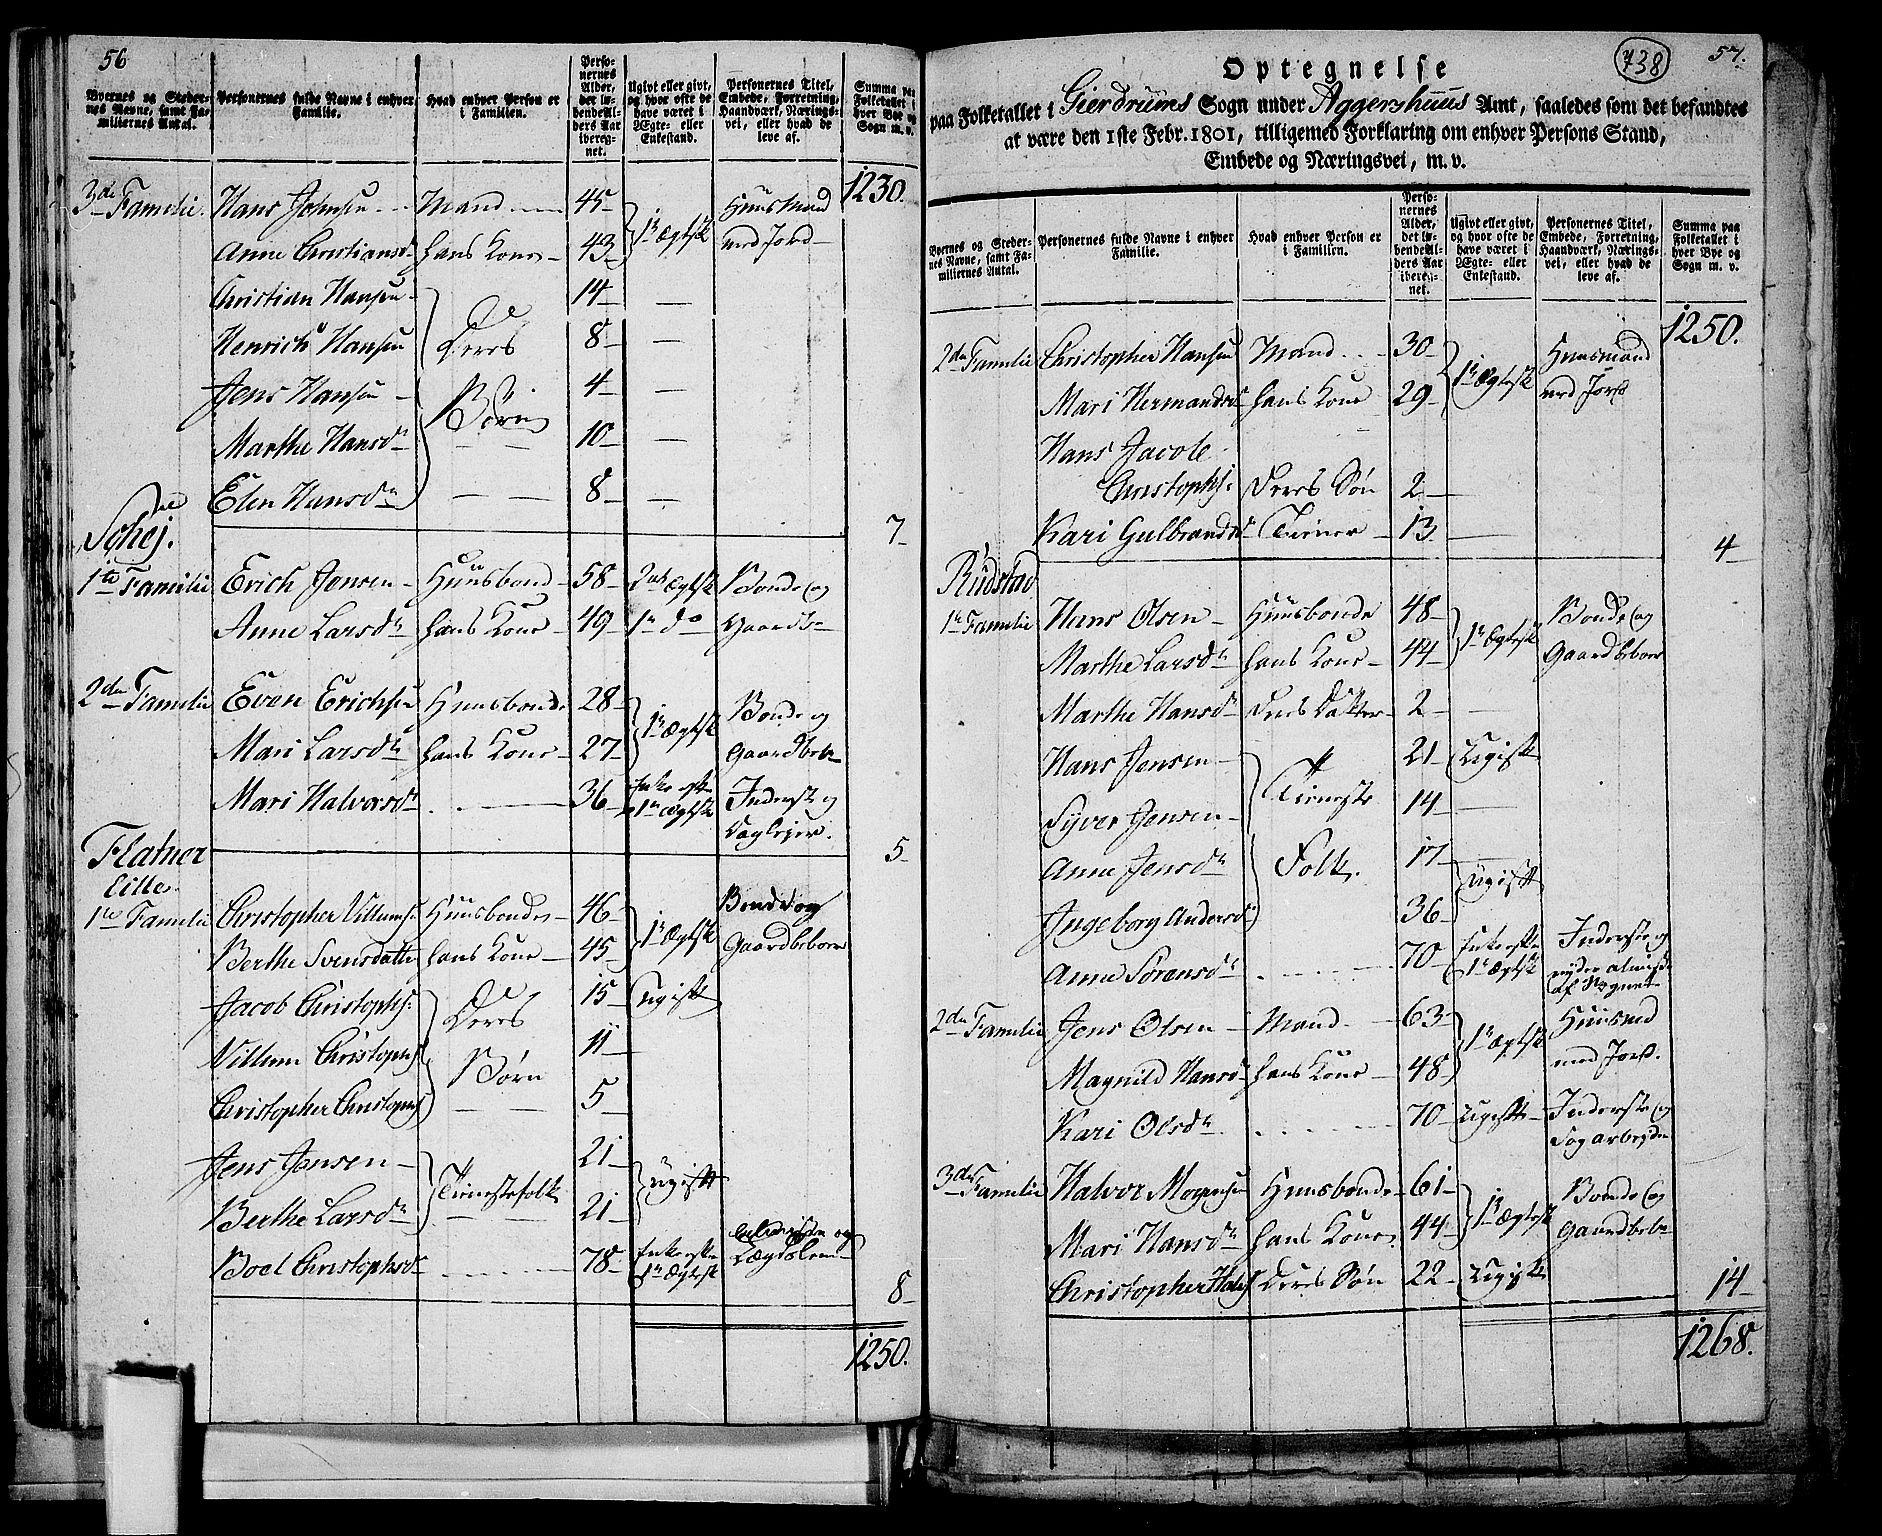 56
Byernes og Stedernes Navne, samt Familiernes Antal. | Personernes fulde Navne i enhver Familie. | Hvad enhver Person er i Familien. | Personernes Alder, det løbende Alders Aar iberegnet. | Ugivt eller givt, og hvor ofte de have været i Ægte- eller Enkestand. | Personernes Titel, Embede, Forretning, Haandværk, Næringsvei, eller hvad de leve af. | Summa paa Folketallet i hver Bye og Sogn m. v.
1230.
3de Familie. Hans Johnsen Mand 45 1te Ægtesk Huusmand
Anne Christiansd hans Kone 43 med Jord
Christian Hansen 14
Henrich Hansen Deres 8
Jens Hansen 4
Marthe Hansdr Børn 10
Elen Hansdr 8
7
1te Familie Erich Jensen Huusbond 58 2det Ægtsk Bonde og
Anne Larsdr hans Kone 49 1te do Gaardb
2den Familie Even Erichsen Huusbonde 28 1te Ægtsk Bonde og
Mari Larsdr hans Kone 27 Gaardbeb
Mari Halvorsdr 36 Enke efter Inderste og
1te Ægtsk Daglejer.
5
Flatner
lille.
1te Familie Christopher Villums: Huusbonde 46 1te Ægtsk Bonde og
Berthe Svensdatter hans Kone 45 Gaardbeboer
Jacob Christophs: Deres 15 Ugift
Villum Christophs 11
Christopher Christophs Børn 5
Jens Jensen 21
Berthe Larsdr Tienestefolk 21 ugift
Boel Christophsdr 78 Enke efter
1te Ægtesk
8
1250.
738
57.
Optegnelse
paa Folketallet i Gierdrums Sogn under Aggershuus Amt, saaledes som det befandtes
at være den 1ste Febr. 1801, tilligemed Forklaring om enhver Persons Stand,
Embede og Næringsvei, m. v.
Byernes og Stedernes Navne, samt Familiernes Antal. | Personernes fulde Navne i enhver Familie. | Hvad enhver Person er i Familien. | Personernes Alder, det løbende Alders Aar iberegnet. | Ugivt eller givt, og hvor ofte de have været i Ægte- eller Enkestand. | Personernes Titel, Embede, Forretning, Haandværk, Næringsvei, eller hvad de leve af. | Summa paa Folketallet i hver Bye og Sogn m. v.
1250.
2den Familie Christopher Hansen Mand 30 1te Ægtesk Huusmand
Mari Hermandsd hans Kone 29 med Jord
Hans Jacob
Christophs: Deres Søn 2
Kari Gulbrandsd Tiener 13
4
Rudstad
1te Familie Hans Olsen Huusbonde 48 1te Ægtesk Bonde og
Marthe Larsdr hans Kone 44 Gaardbeboer
Marthe Hansdr Deres Datter 2
Hans Jensen 21 Ugift
Syver Jensen Tieneste 14
Anne Jensdr Folk. 17
Ingeborg Andersdr 36 Ugift
Anne Sørensdr 70 Enke efter Inderste og
1te Ægtsk nyder almisse
af Sognet
2den Familie Jens Olsen Mand 63 1te Ægtsk Huusmd
Magnild Hansdr hans Kone 48 med Jord.
Kari Olsdr 70 Ugift Inderste og
3de Familie Halvor Mogensen Huusbonde 61 1te Ægtesk Bonde og
Mari Hansdr hans Kone 44 Gaardbeb
Christopher Halvs Deres Søn 22 Ugift
14
1268.